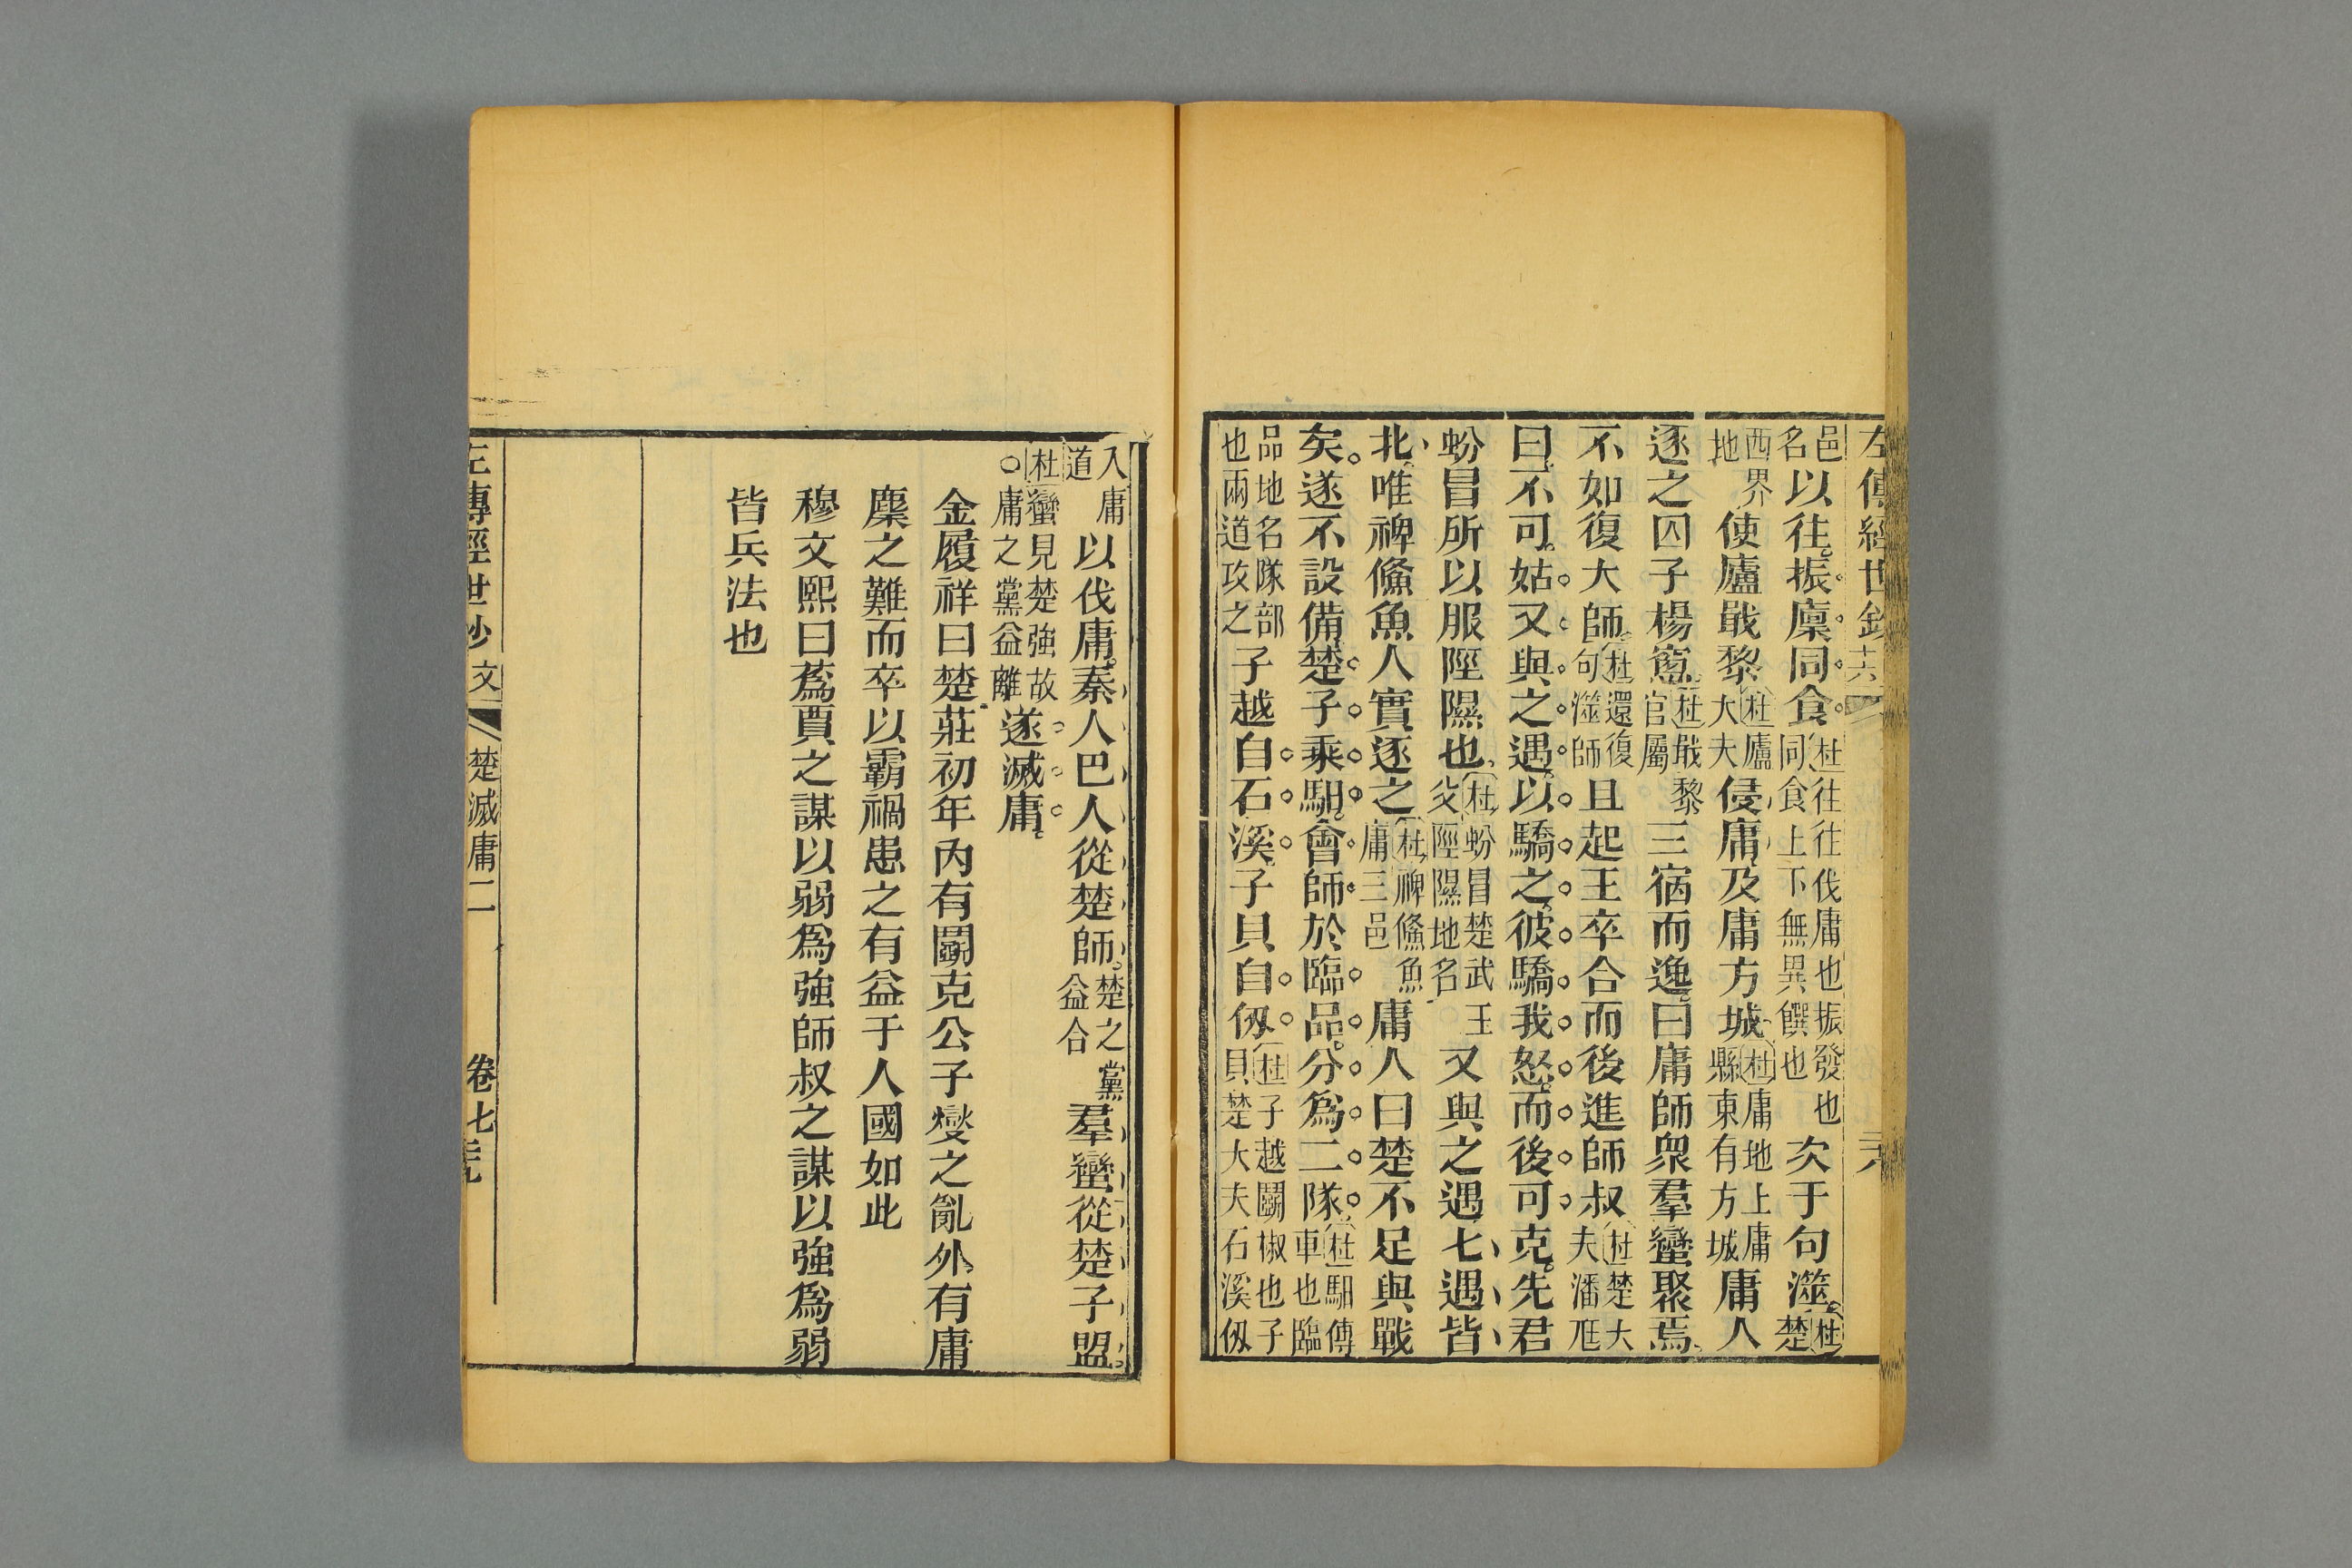 左傳經世鈔 十六 二六
邑名以往振廩同食杜往往伐庸也振發也同食上下無異饌也次于句澨杜楚
西界地使廬戢黎杜廬大夫侵庸及庸方城杜庸地上庸縣東有方城庸人
逐之囚子楊窻杜戢黎官屬三宿而逸曰庸師衆羣蠻聚焉
不如復大師杜還復句澨師且起王卒合而後進師叔杜楚大夫潘尫
曰不可姑又與之遇以驕之彼驕我怒而後可克先君
蚡冒所以服陘隰也杜蚡冒楚武王父陘隰地名又與之遇七遇皆
北唯裨鯈魚人實逐之杜裨鯈魚庸三邑庸人曰楚不足與戰
矣遂不設備楚子乘馹會師於臨品分爲二隊杜馹傳車也臨
品地名隊部也兩道攻之子越自石溪子貝自仭杜子越鬬椒也子貝楚大夫石溪仭
入庸道以伐庸秦人巴人從楚師楚之黨益合羣蠻從楚子盟
杜蠻見楚強故○庸之黨益離遂滅庸
金履祥曰楚莊初年內有鬬克公子燮之亂外有庸
麇之難而卒以霸禍患之有益于人國如此
穆文熙曰蒍賈之謀以弱爲強師叔之謀以強爲弱
皆兵法也
左傳經世鈔 文 楚滅庸二 卷七